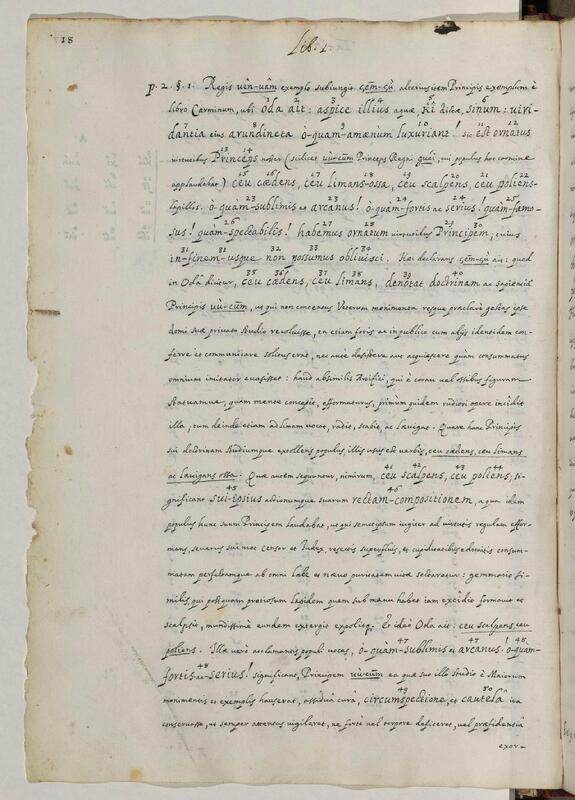 18
Lib. 1.
p. 2. §. 1. Regis vên-vâm exemplo subiungit çem-çù alterius item Principis exemplum è
libro Carminum, ubi Oda ait: aspice illius aquæ, Ki dictæ, sinum: viri-
dantia eius arundineta ô-quam-amænum luxuriant! sic est ornatus
virtutibus Princeps noster (scilicet vù-cum Princeps Regni guei, cui populus hoc carmine
applaudebat) ceu cædens, ceu limans-ossa, ceu scalpens, ceu poliens-
lapillos. ô-quàm-sublimis et arcanus! ô-quàm-fortis ac serius! quàm-famo-
sus! quàm-spectabilis! habemus ornatum virtutibus Principem, cuius
in-finem-usque non possumus oblivisci. Hæc declarans çem-çu ait: quod
in Odâ dicitur, ceu cædens, ceu limans, denotat doctrinam ac sapientiã
Principis vù-cum, ut qui non contentus Veterum monimenta resque præclarè gestas ipse
domi suæ privato studio revoluisse, ea etiam foris ac in publico cum alijs identidem con-
ferre et communicare solitus erat, nec ante desistere aut acquiescere quàm consummatus
omnium imitator evasisset: haud absimilis Artifici, qui è cornu vel ossibus figuram
statuamue, quam mente concepit, efformaturus, primùm quidem rudiori opere incidit
illa, tum deinde etiam ad limam vocat, radit, scabit, ac lævigat. Quare hunc Principis
sui doctrinam studiumque extollens populus, illis usus est verbis, ceu cædens, ceu limans
ac lævigans ossa. Quæ autem sequuntur, nimirum, ceu scalpens, ceu poliens, si-
gnificant sui-ipsius actionumque suarum rectam-compositionem, a qua idem
populus hunc suum Principem laudabat, ut qui semetipsum iugiter ad virtutis regulam effor-
mans, severus sui met censor et Iudex, resectis superfluis, et cupiditatibus edomitis consum-
matam perfectamque ab omni labe et nævo puritatem vitæ sectaretur: gemmario si-
milis, qui postquam pretiosum lapidem quem sub manu habet iam excîdio formavit et
scalpsit, mundissimè eundem extergit expolitque. Et ideò Oda ait: ceu scalpens, ceu
poliens. Illæ verò acclamantis populi voces, ô-quàm-sublimis et arcanus! ô-quàm-
fortis-ac-serius! significant, Principem vù-cum ea quæ suo illo studio è Maiorum
monimentis et exemplis hauserat, assiduâ curâ, circumspectione, et cautelâ ita
conservasse, ut semper attentus vigilaret, ne fortè vel torpore deficeret, vel præfidentia
exor-